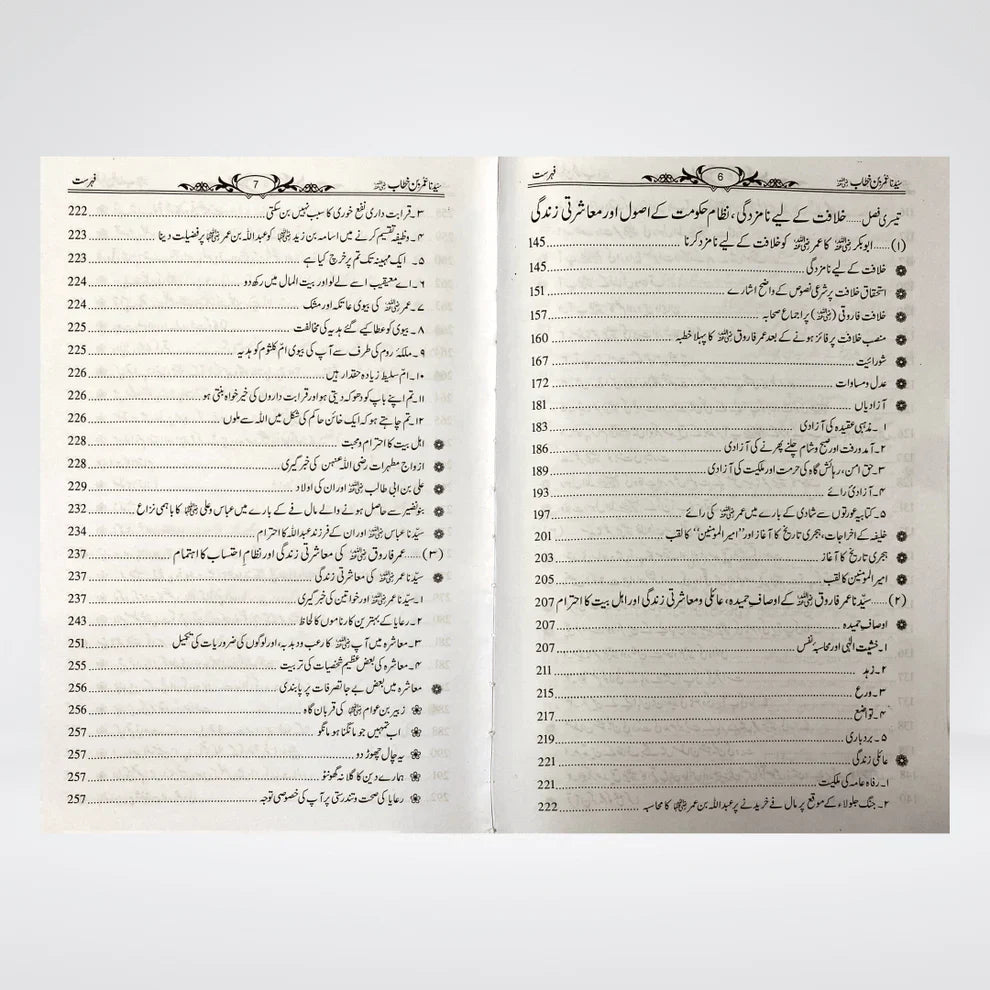 سیّدنا عمر بن خطاب رضی اللہ عنہ 6 فہرست
تیسری فصل.....خلافت کے لیے نامزدگی، نظام حکومت کے اصول اور معاشرتی زندگی
(۱).....ابوبکر رضی اللہ عنہ کا عمر رضی اللہ عنہ کو خلافت کے لیے نامزد کرنا 145
خلافت کے لیے نامزدگی 145
استحقاق خلافت پر شرعی نصوص کے واضح اشارے 151
خلافت فاروقی (رضی اللہ عنہ) پر اجماع صحابہ 157
منصب خلافت پر فائز ہونے کے بعد عمر فاروق رضی اللہ عنہ کا پہلا خطبہ 160
شورائیت 167
عدل و مساوات 172
آزادیاں 181
۱۔ مذہبی عقیدہ کی آزادی 183
۲۔ آمد و رفت اور صبح و شام چلنے پھرنے کی آزادی 186
۳۔ حق امن، رہائش گاہ کی حرمت اور ملکیت کی آزادی 189
۴۔ آزادیٔ رائے 193
۵۔ کتابیہ عورتوں سے شادی کے بارے میں عمر رضی اللہ عنہ کی رائے 197
خلیفہ کے اخراجات، ہجری تاریخ کا آغاز اور ’’امیر المومنین‘‘ کا لقب 201
ہجری تاریخ کا آغاز 203
امیر المومنین کا لقب 205
(۲).....سیّدنا عمر فاروق رضی اللہ عنہ کے اوصاف حمیدہ، عائلی و معاشرتی زندگی اور اہل بیت کا احترام 207
اوصاف حمیدہ 207
۱۔ خشیت الٰہی اور محاسبۂ نفس 207
۲۔ زہد 211
۳۔ ورع 215
۴۔ تواضع 217
۵۔ بردباری 219
عائلی زندگی 221
۱۔ رفاہ عامہ کی ملکیت 221
۲۔ جنگ جلولاء کے موقع پر مال فے خریدنے پر عبداللہ بن عمر رضی اللہ عنہما کا محاسبہ 222
سیّدنا عمر بن خطاب رضی اللہ عنہ 7 فہرست
۳۔ قرابت داری نفع خوری کا سبب نہیں بن سکتی 222
۴۔ وظیفہ تقسیم کرنے میں اسامہ بن زید رضی اللہ عنہما کو عبداللہ بن عمر رضی اللہ عنہما پر فضیلت دینا 223
۵۔ ایک مہینہ تک تم پر خرچ کیا ہے 223
۶۔ اے معیقیب اسے لے لو اور بیت المال میں رکھ دو 224
۷۔ عمر رضی اللہ عنہ کی بیوی عاتکہ اور مشک 224
۸۔ بیوی کو عطا کیے گئے ہدیہ کی مخالفت 225
۹۔ ملکۂ روم کی طرف سے آپ کی بیوی امّ کلثوم کو ہدیہ 225
۱۰۔ امّ سلیط زیادہ حقدار ہیں 226
۱۱۔ تم اپنے باپ کو دھوکہ دیتی ہو اور قرابت داروں کی خیر خواہ بنتی ہو 226
۱۲۔ تم چاہتے ہو کہ ایک خائن حاکم کی شکل میں اللہ سے ملوں 226
اہل بیت کا احترام و محبت 228
ازواج مطہرات رضی اللہ عنہن کی خبر گیری 228
علی بن ابی طالب رضی اللہ عنہ اور ان کی اولاد 229
بنو نضیر سے حاصل ہونے والے مال فے کے بارے میں عباس و علی رضی اللہ عنہما کا باہمی نزاع 232
سیّدنا عباس رضی اللہ عنہ اور ان کے فرزند عبداللہ کا احترام 234
(۳).....عمر فاروق رضی اللہ عنہ کی معاشرتی زندگی اور نظام احتساب کا اہتمام 237
سیّدنا عمر رضی اللہ عنہ کی معاشرتی زندگی 237
۱۔ سیّدنا عمر رضی اللہ عنہ اور خواتین کی خبر گیری 237
۲۔ رعایا کے بہترین کارناموں کا لحاظ 243
۳۔ معاشرہ میں آپ رضی اللہ عنہ کا رعب و دبدبہ، اور لوگوں کی ضروریات کی تکمیل 251
۴۔ معاشرہ کی بعض عظیم شخصیات کی تربیت 255
معاشرہ میں بعض بے جا تصرفات پر پابندی 256
زبیر بن عوام رضی اللہ عنہ کی قربان گاہ 256
اب تمہیں جو مانگنا ہو مانگو 257
یہ چال چھوڑ دو 257
ہمارے دین کا گلا نہ گھونٹو 257
رعایا کی صحت و تندرستی پر آپ کی خصوصی توجہ 257